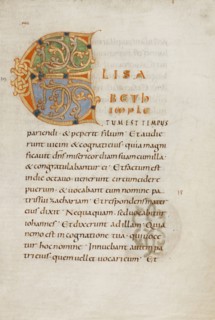 ELISA
BETH
IMPLE
TUM EST TEMPUS
pariendi · & peperit filium · Et audie
runt uicini & cognati eius · quia magni
ficauit dns misericordiam suam cum illa
& congratulabantur ei · Et factum est
indie octauo · uenerunt circumcidere
puerum · & uocabant eum nomine pa
tris sui zachariam · Et respondens mater
eius dixit · Nequaquam · sed uocabitur
iohannes · Et dixerunt ad illam · Quia
nemo est in cognatione tua · qui uoce
tur hoc nomine · Innuebant autem pa
tri eius · quem uellet uocari eum · Et